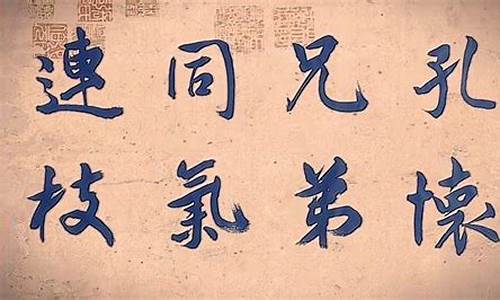 孔懷
兄弟
同氣
連枝